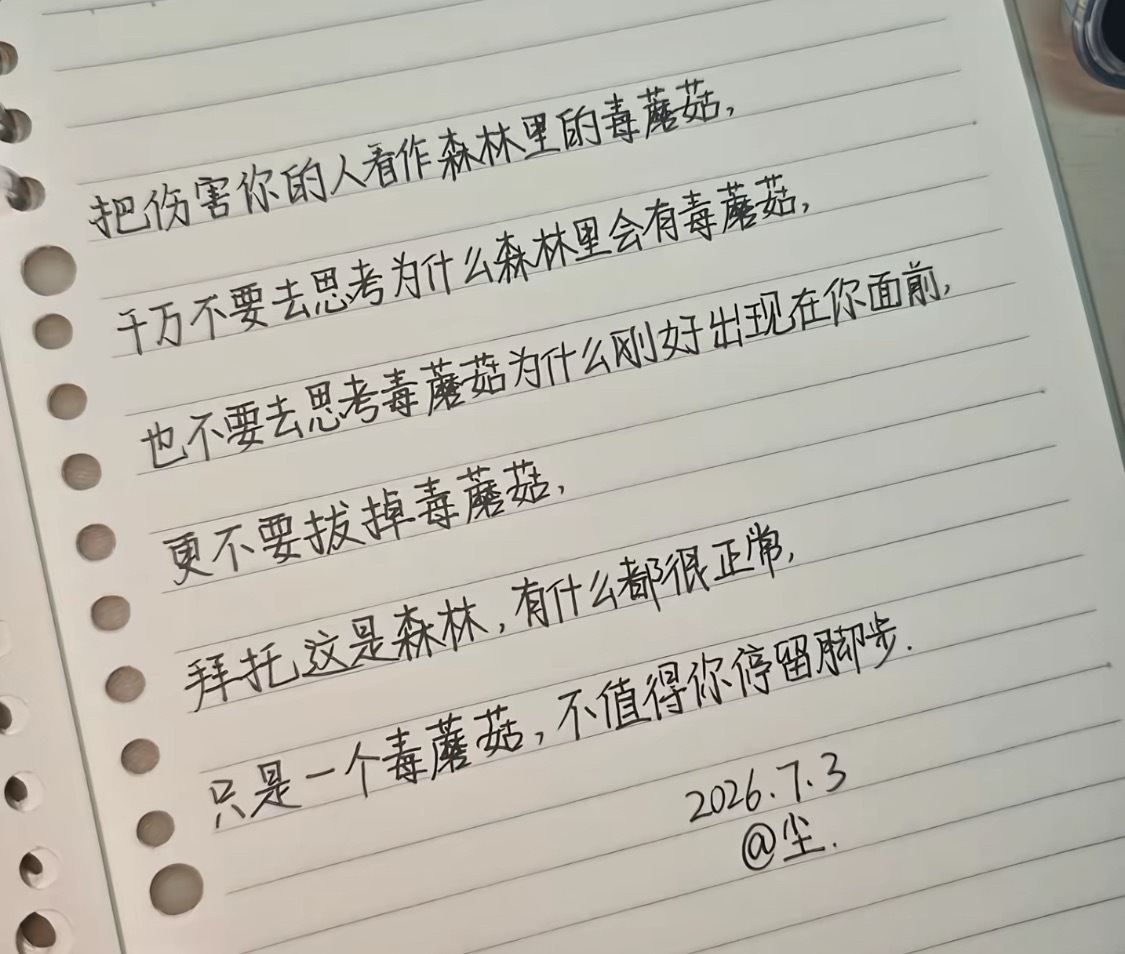 把伤害你的人看作森林里的毒蘑菇,
千万不要去思考为什么森林里会有毒蘑菇,
也不要去思考毒蘑菇为什么刚好出现在你面前,
更不要拔掉毒蘑菇,
拜托,这是森林,有什么都很正常,
只是一个毒蘑菇,不值得你停留脚步.
2026.7.3
@尘.